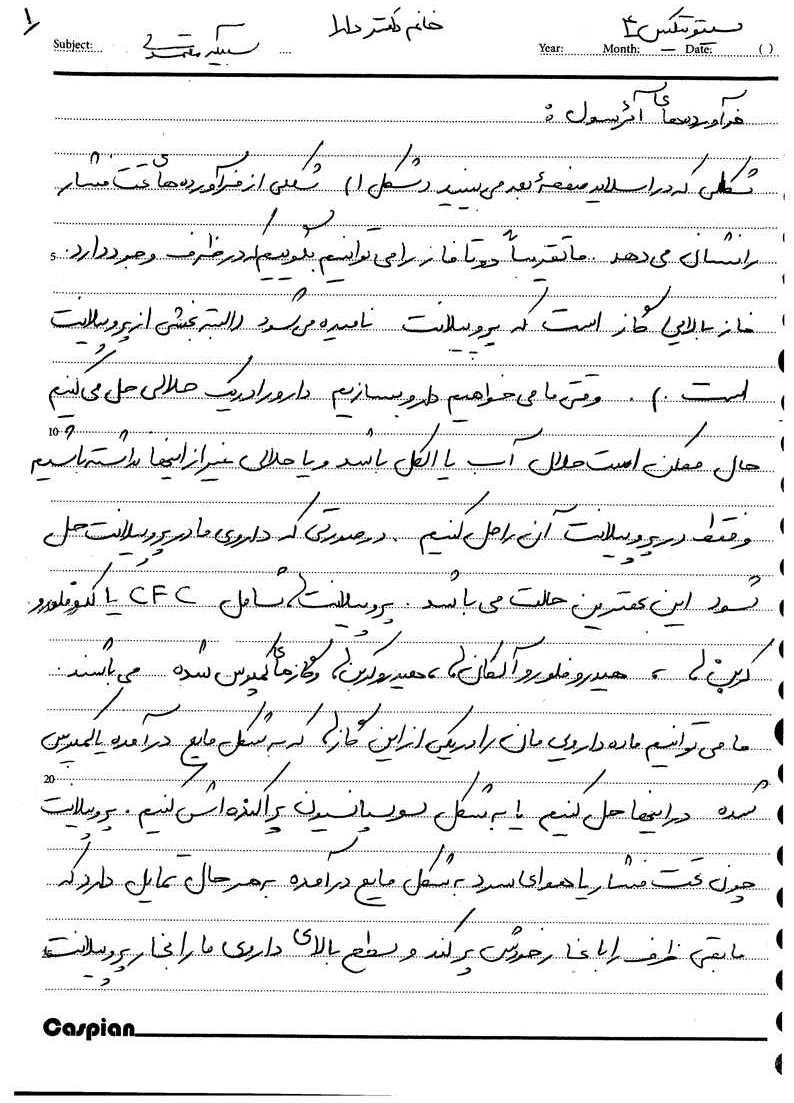 ۱
سیتوتیکس ۴
خانم دکتر دارا
Subject: .... Year: Month: Date: ( )
فرآورده‌های آئرسول :
شکلی که در اسلاید صفحهٔ بعد می بینید (شکل ۱) شکلی از فرآورده های تحت فشار
5 را نشان می دهد . ما تقریباً دو تا فاز را می توانیم بگوییم که در ظرف وجود دارد .
فاز بالایی گاز است که پروپیلانت نامیده می شود (البته بخشی از پروپیلانت
است .) . وقتی ما می خواهیم دارو بسازیم دارو را در یک حلالی حل می کنیم
10 حال ممکن است حلال آب یا الکل باشد و یا حلالی غیر از اینها نداشته باشیم
و فقط در پروپیلانت آن را حل کنیم . در صورتی که داروی ما در پروپیلانت حل
شود این بهترین حالت می باشد . پروپیلانت ها شامل CFC یا کلروفلورو
کربن ها ، هیدروفلوروآلکان ها ، هیدروکربن ها و گازهای کمپرس شده می باشند .
ما می توانیم ماده دارویی مان را در یکی از این گازها که به شکل مایع درآمده یا کمپرس
20 شده در اینها حل کنیم یا به شکل سوسپانسیون پراکنده اش کنیم . پروپیلانت
چون تحت فشار یا هوای سرد به شکل مایع درآمده به هر حال تمایل دارد که
مابقی ظرف را با بخار خودش پر کند و سطح بالای داروی ما را بخار پروپیلانت
Caspian